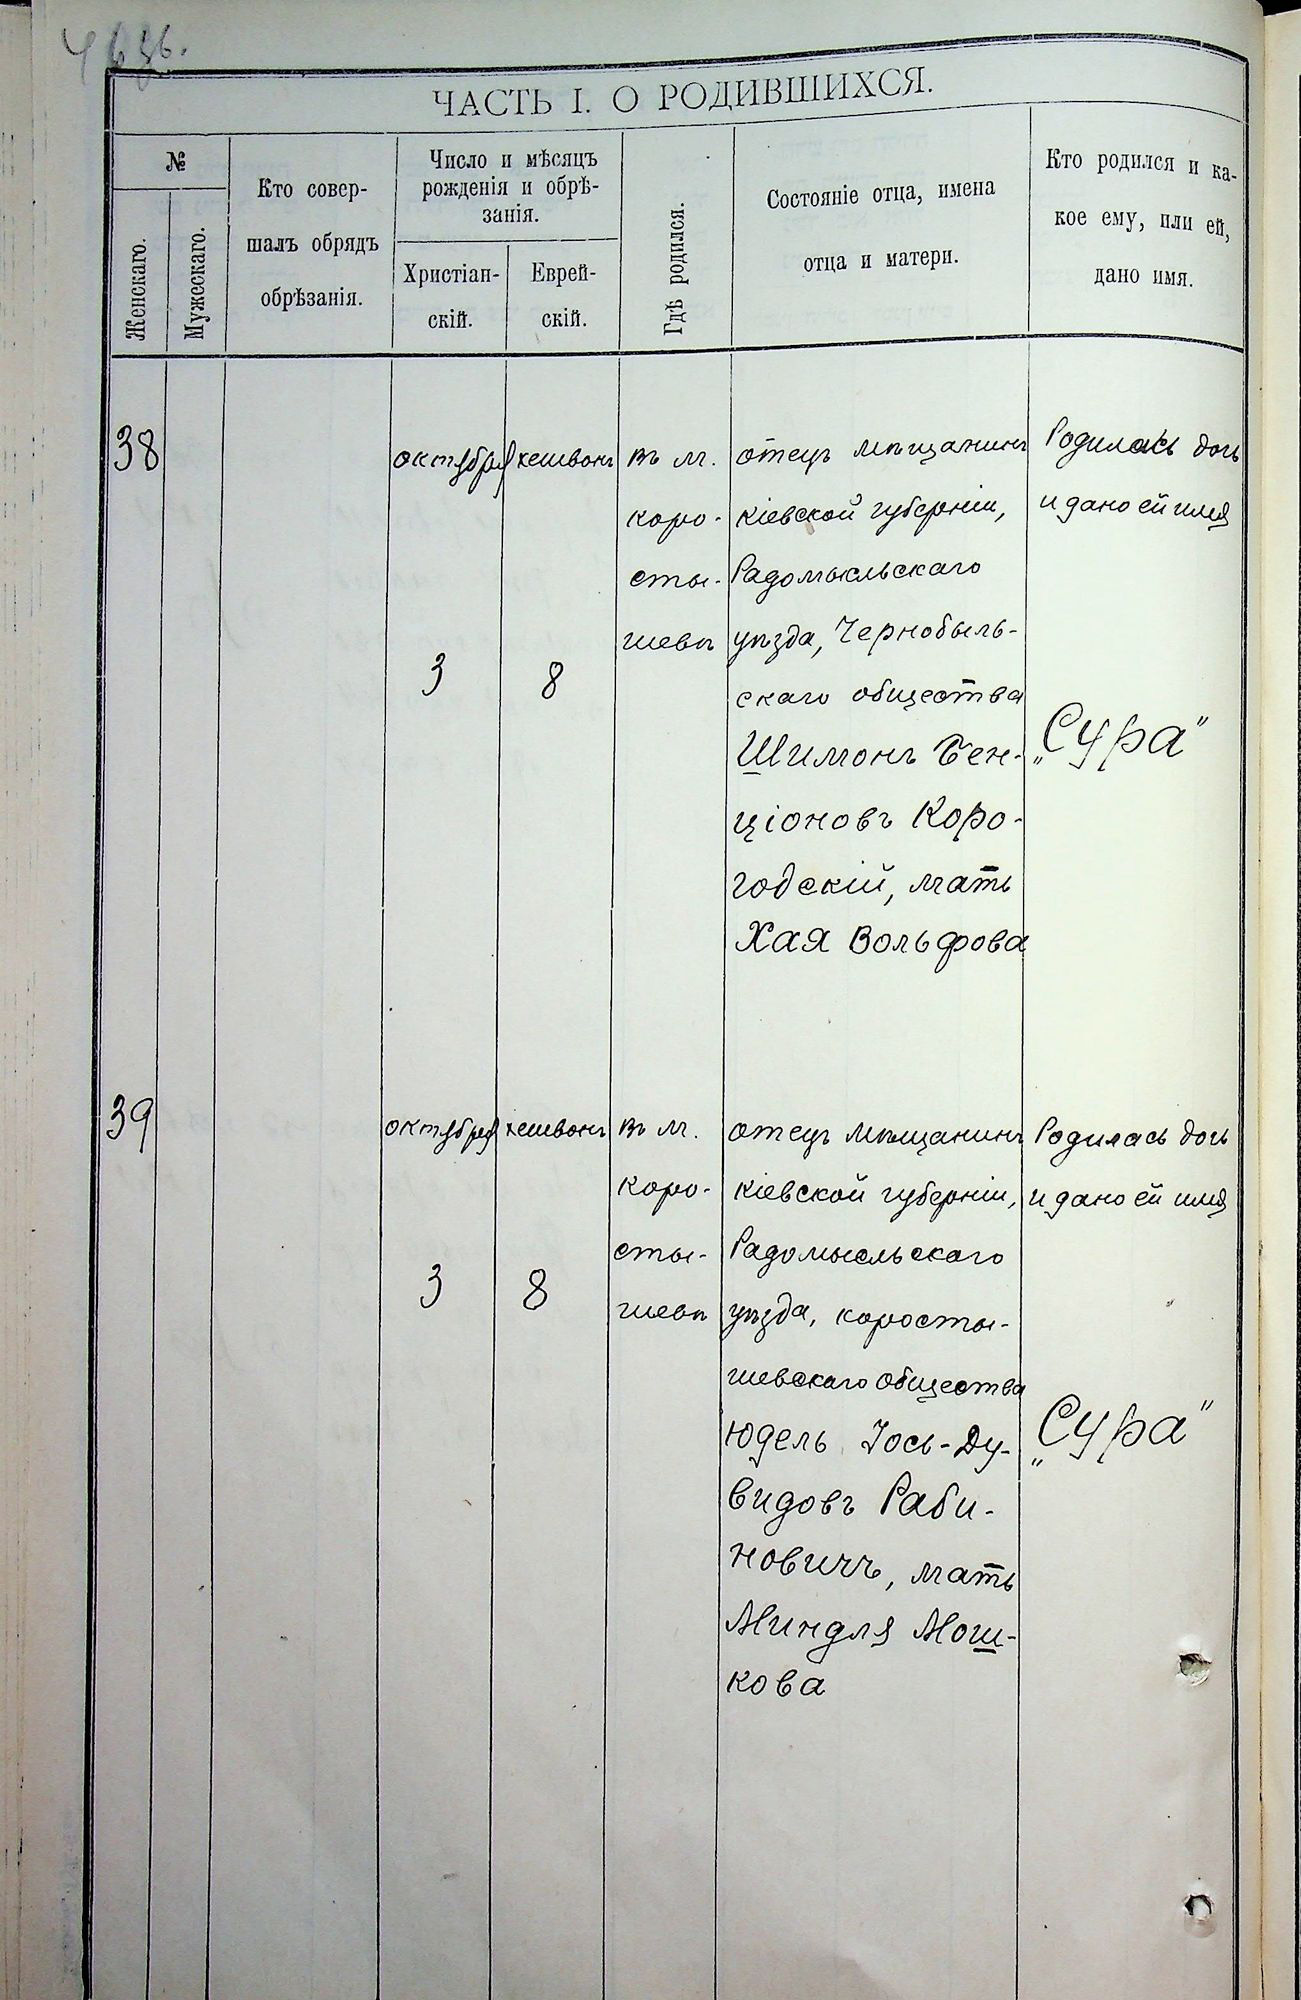 ЧАСТЬ I. О РОДИВШИХСЯ.
№
Женскаго.
Мужескаго.
Кто совер-
шалъ обрядъ
обрѣзанія.
Число и мѣсяцъ
рожденія и обрѣ-
занія.
Христіан-
скій.
Еврей-
скій.
Гдѣ родился.
Состояніе отца, имена
отца и матери.
Кто родился и ка-
кое ему, или ей,
дано имя.
38
октября
3
хешвонъ
8
въ м.
коро-
сты-
шевѣ
отецъ мѣщанинъ
кіевской губерніи,
Радомысльскаго
уѣзда, Чернобыль-
скаго общества
Шимонъ Бен-
ціоновъ Коро-
годскій, мать
Хая Вольфова
Родилась дочь
и дано ей имя
„Сура"
39
октября
3
хешвонъ
8
въ м.
коро-
сты-
шевѣ
отецъ мѣщанинъ
кіевской губерніи,
Радомысльскаго
уѣзда, коросты-
шевскаго общества
Юдель Іось-Ду-
видовъ Раби-
новичъ, мать
Миндля Мош-
кова
Родилась дочь
и дано ей имя
„Сура"